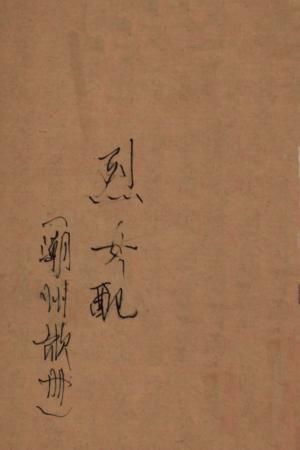 烈女配
（潮州歌册）